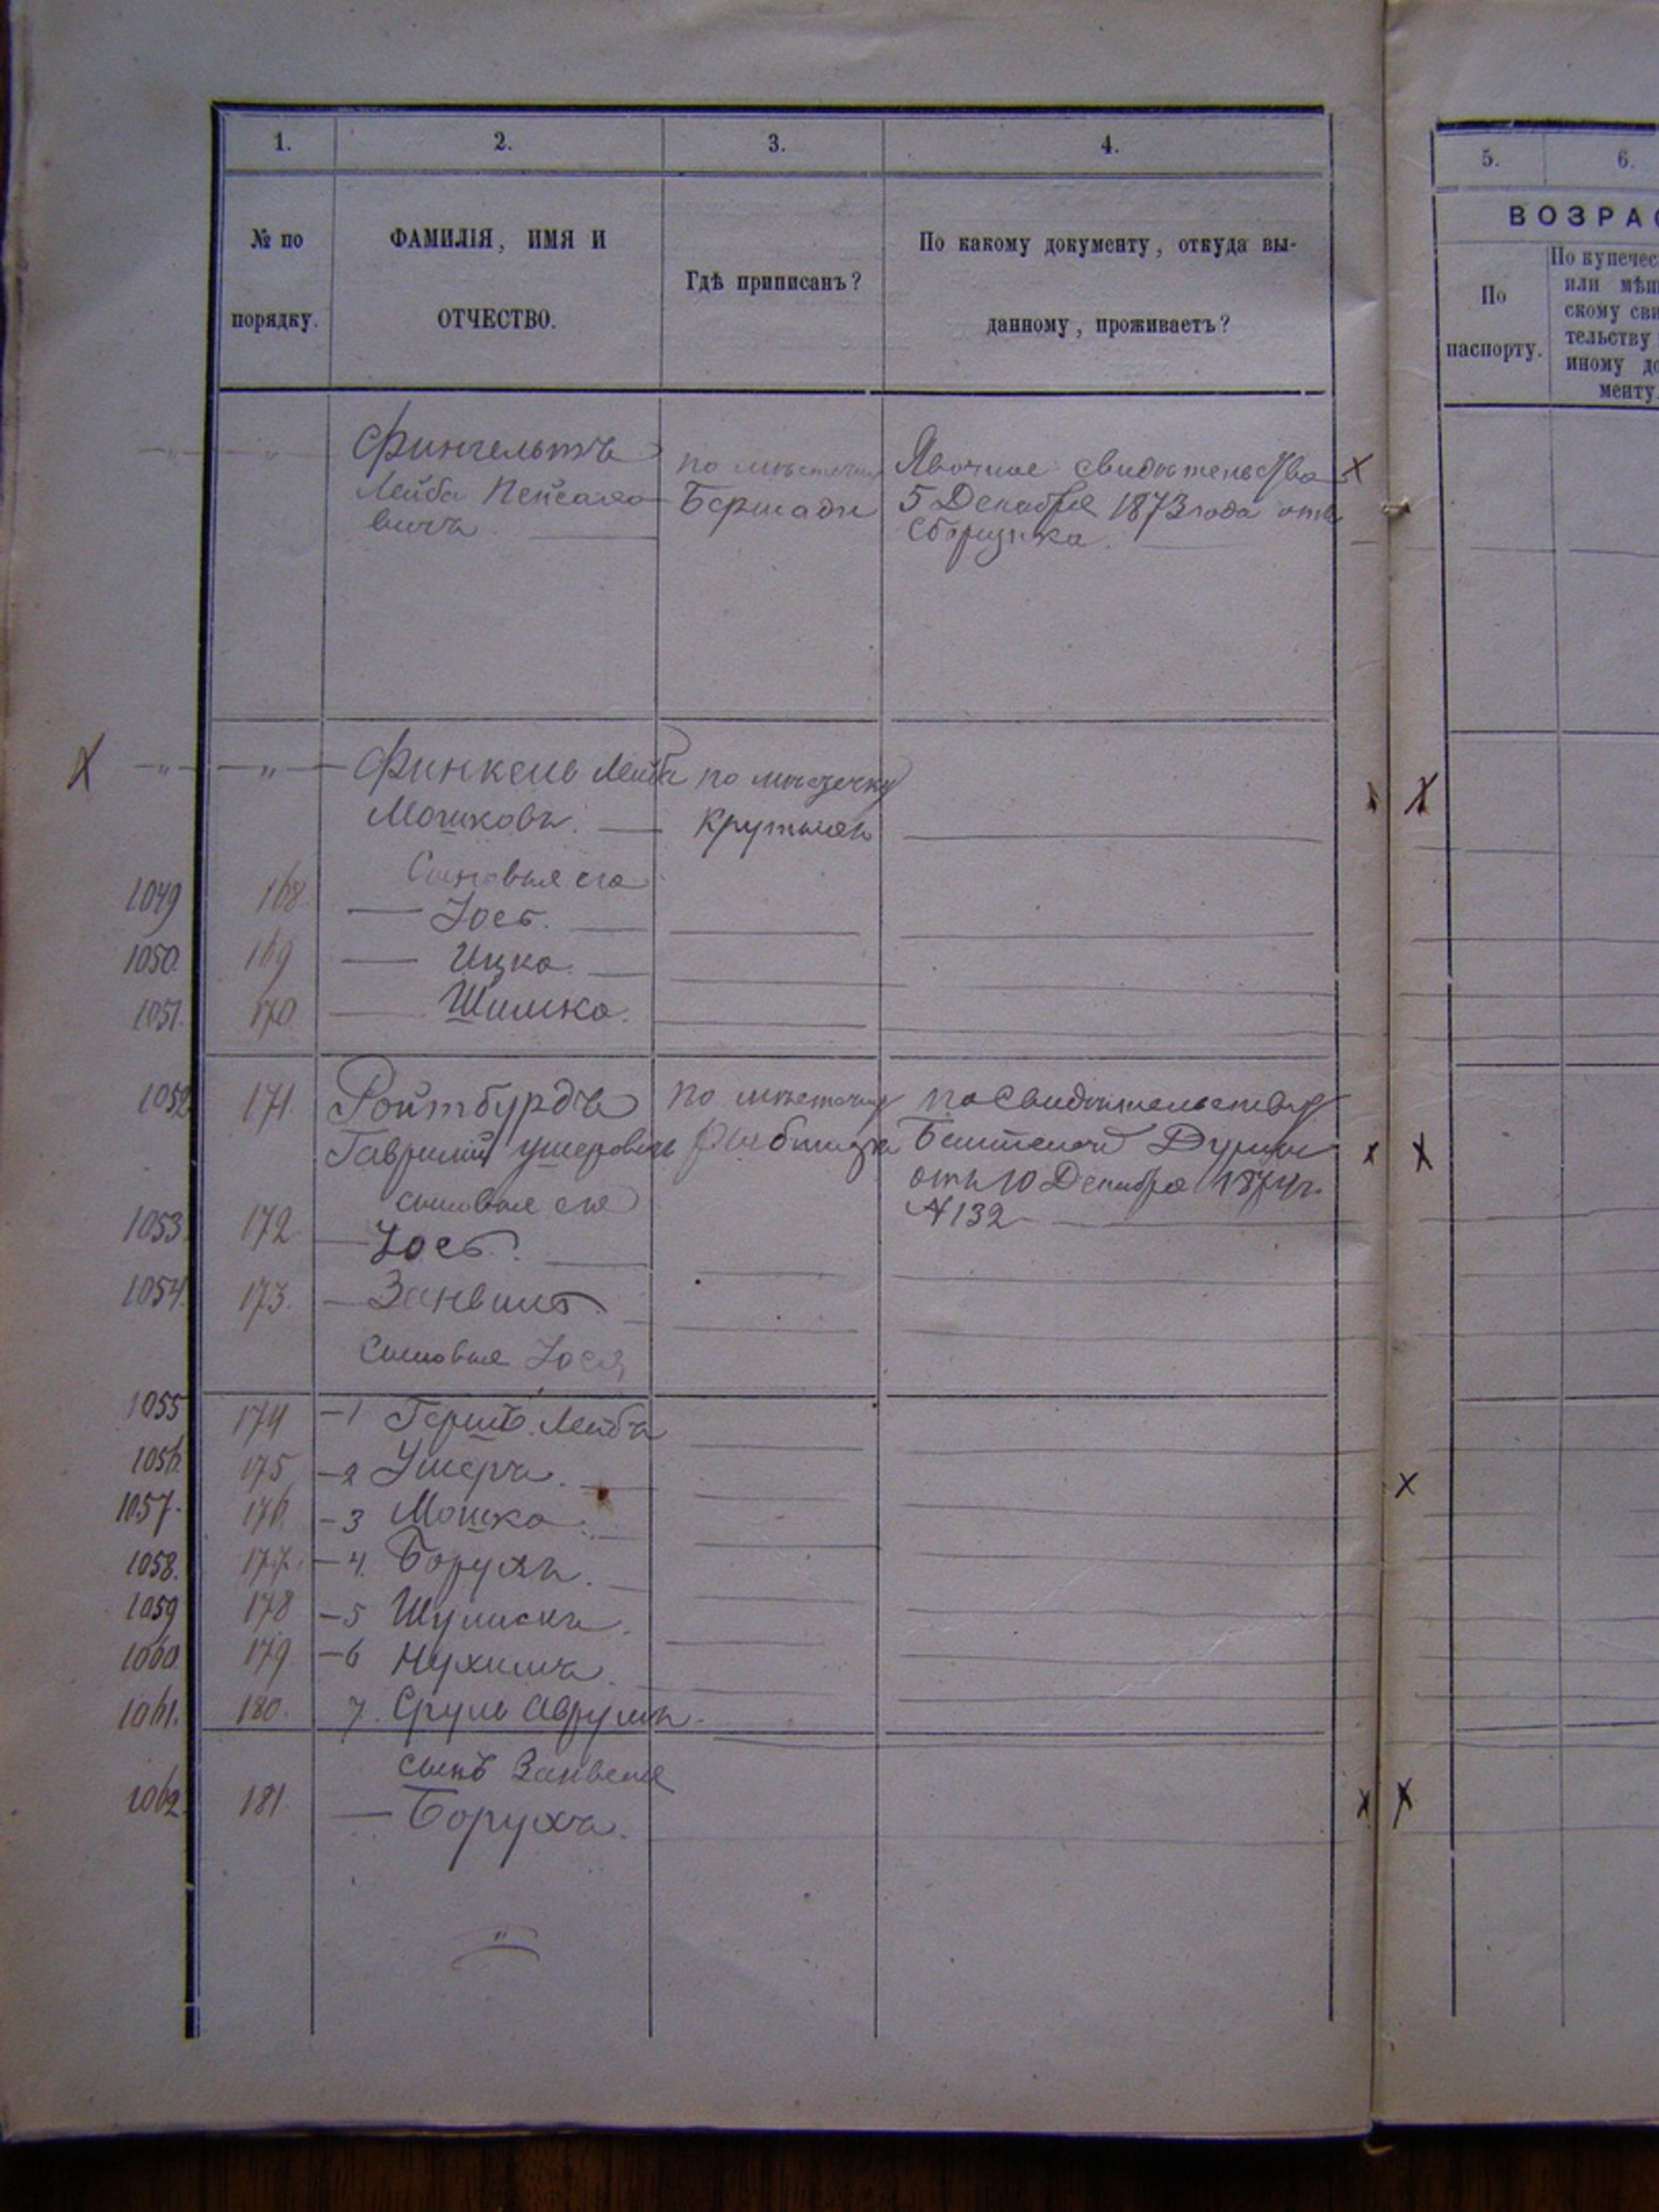 1. 2. 3. 4.
№ по порядку.
ФАМИЛІЯ, ИМЯ И
ОТЧЕСТВО.
Гдѣ приписанъ?
По какому документу, откуда вы-
данному, проживаетъ?
5. 6.
ВОЗРАС
По
паспорту.
По купечес
или мѣщ
скому сви
тельству
иному до
менту.
Фингельтъ
Лейба
вичъ
по мѣстечку
Бершади
Явочное свидѣтельство
5 Декабря 1873 года отъ
Сборщика.
Финкель Лейба по мѣстечку
Мошковъ. Крутымъ
Сыновья его
1049 168. Іось.
1050. 169 Ицко.
1051. 170 Шимко.
1052 171. Ройтбурдъ по мѣстечку по Свидѣтельству
Гаврилій Ушеровичъ Рыбница Думы
отъ 10 Декабря 1874 г.
сыновья его
№ 132
1053. 172 Іось.
1054. 173. Занвиль.
Сыновья Іося
1055 174 -1 Гершъ Лейба
1056. 175 -2 Ушеръ.
1057. 176. -3 Мошко.
1058. 177. -4. Борухъ.
1059 178 -5
1060. 179. -6 Нухимъ
1061. 180. 7. Сруль Аврумъ.
сынъ Занвеля
1062. 181. Борухъ.